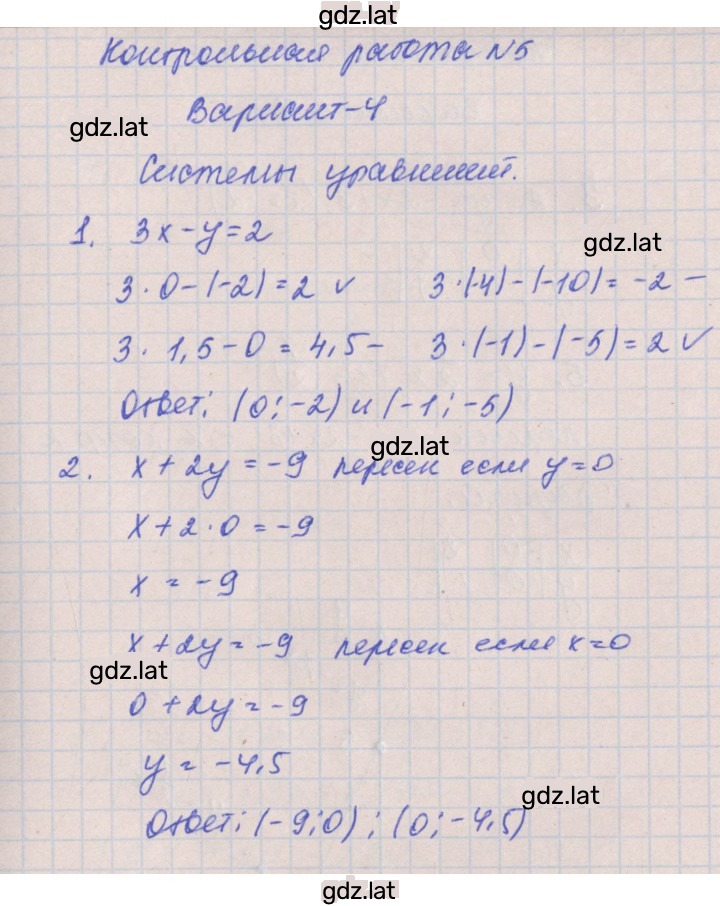 gdz.lat
Контрольная работа №5
Вариант-4
gdz.lat
Системы уравнений.
1. 3x - y = 2
gdz.lat
3 · 0 - (-2) = 2 ✓ 3 · (-4) - (-10) = -2 -
3 · 1,5 - 0 = 4,5 - 3 · (-1) - (-5) = 2 ✓
Ответ: (0; -2) и (-1; -5)
gdz.lat
2. x + 2y = -9 пересек если y = 0
x + 2 · 0 = -9
x = -9
x + 2y = -9 пересек если x = 0
gdz.lat
0 + 2y = -9
y = -4,5
gdz.lat
Ответ: (-9; 0); (0; -4,5)
gdz.lat